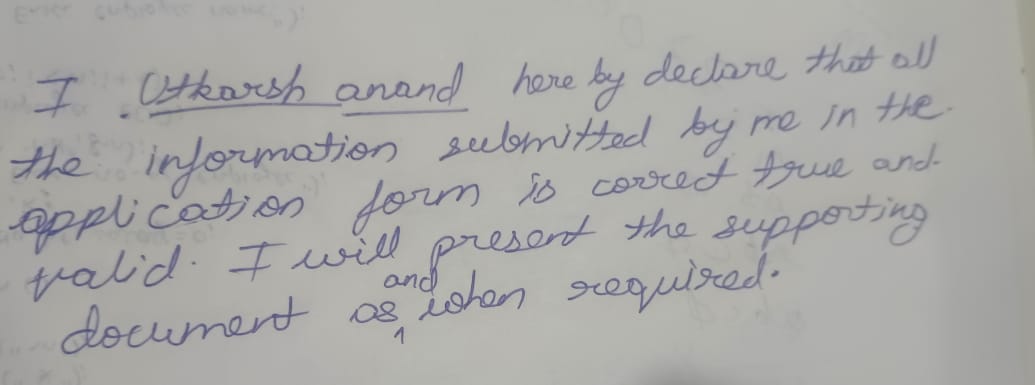 I. Utkarsh anand here by declare that all
the information submitted by me in the.
application form is correct true and.
valid. I will present the supporting
document as and when required.